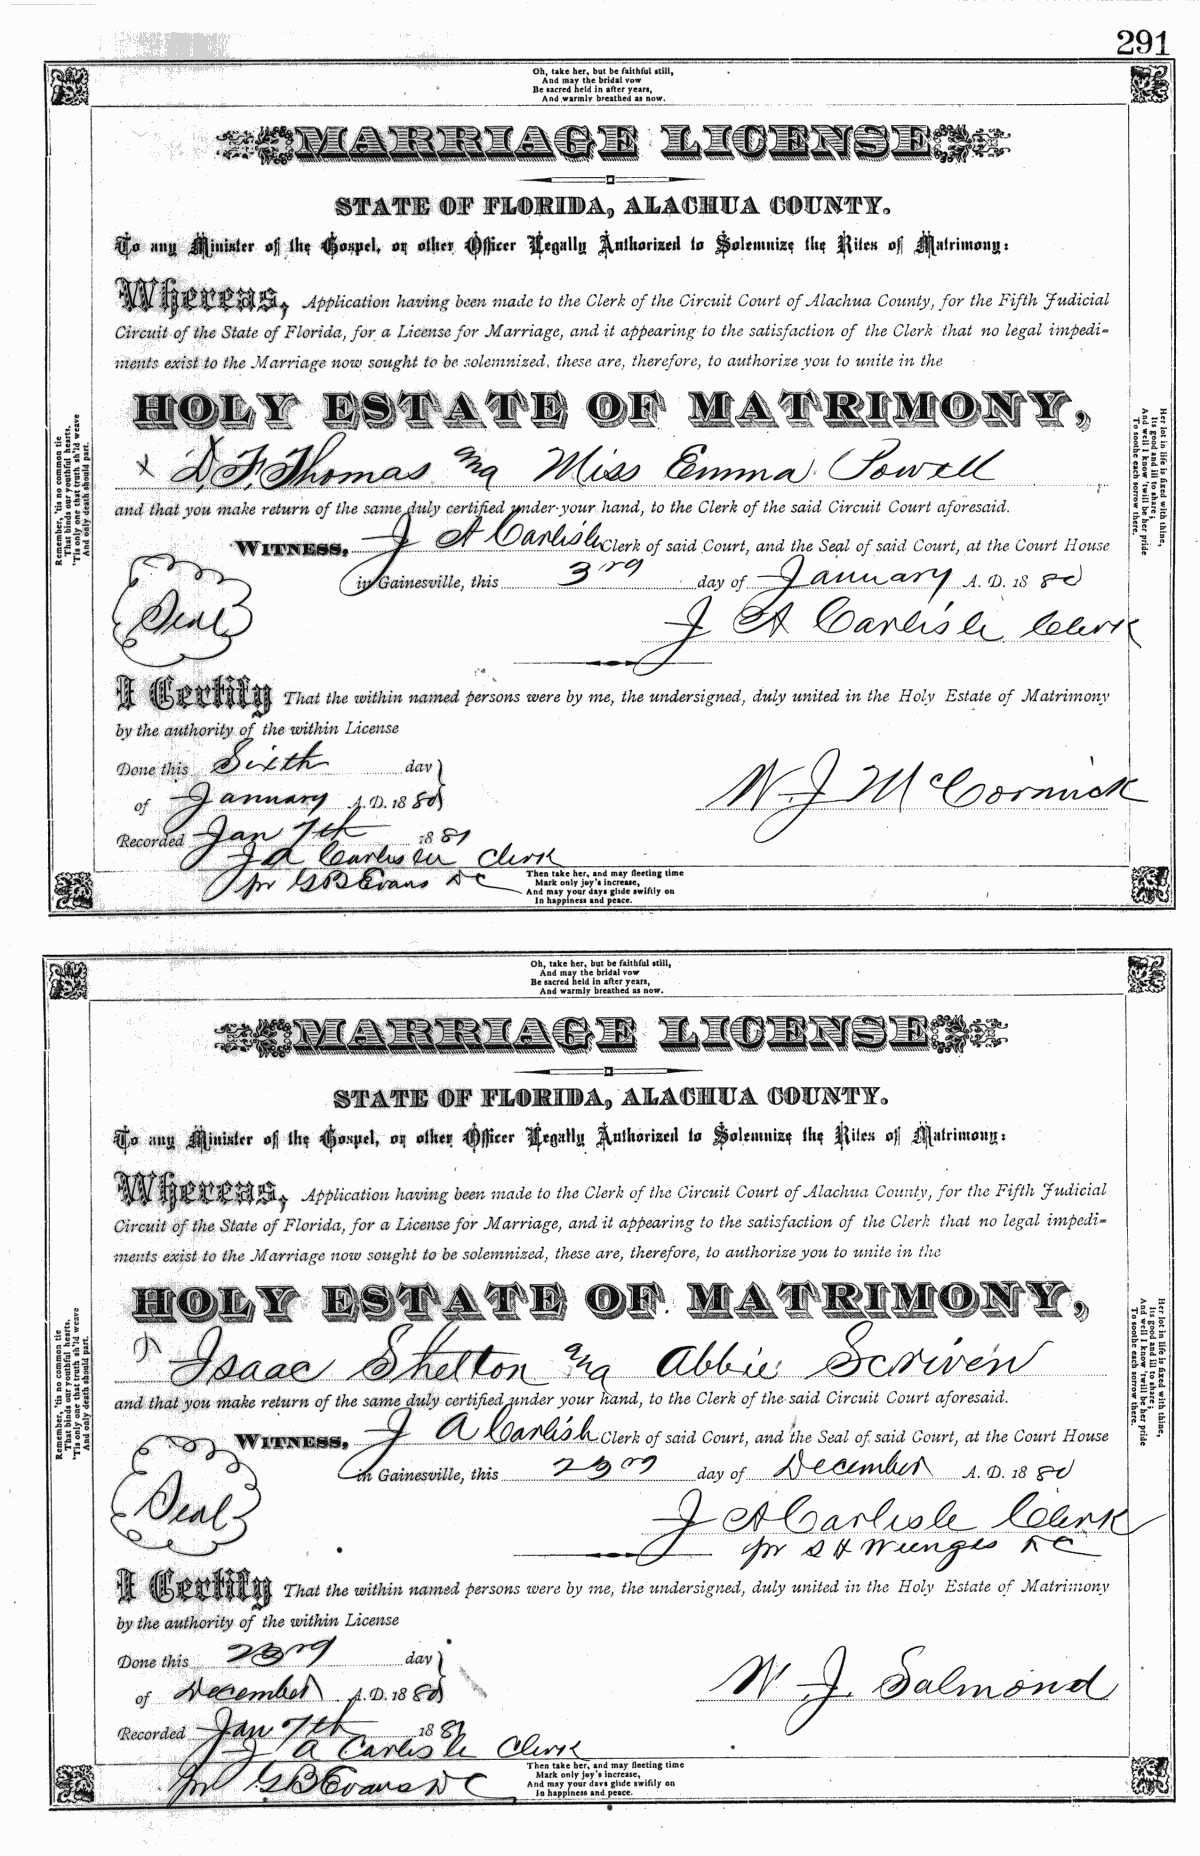 291
Oh, take her, but be faithful still,
And may the bridal vow
Be sacred held in after years,
And warmly breathed as now.
MARRIAGE LICENSE
STATE OF FLORIDA, ALACHUA COUNTY.
To any Minister of the Gospel, or other Officer Legally Authorized to Solemnize the Rites of Matrimony:
Whereas, Application having been made to the Clerk of the Circuit Court of Alachua County, for the Fifth Judicial
Circuit of the State of Florida, for a License for Marriage, and it appearing to the satisfaction of the Clerk that no legal impedi-
ments exist to the Marriage now sought to be solemnized, these are, therefore, to authorize you to unite in the
HOLY ESTATE OF MATRIMONY,
x D. F. Thomas and Miss Emma Powell
and that you make return of the same duly certified under your hand, to the Clerk of the said Circuit Court aforesaid.
WITNESS, J A Carlisle Clerk of said Court, and the Seal of said Court, at the Court House
in Gainesville, this 3rd day of January A. D. 18 80
Seal
J A Carlisle Clerk
I Certify That the within named persons were by me, the undersigned, duly united in the Holy Estate of Matrimony
by the authority of the within License
Done this Sixth day
of January A. D. 18 80
W. J McCormick
Recorded Jan 7th 1881
J A Carlisle Clerk
pr G B Evans DC
Then take her, and may fleeting time
Mark only joy's increase,
And may your days glide swiftly on
In happiness and peace.
Remember, 'tis no common tie
That binds our youthful hearts.
'Tis only one that truth sh'ld weave
And only death should part.
Her lot in life is fixed with thine,
Its good and ill to share;
And well I know 'twill be her pride
To soothe each sorrow there.
Oh, take her, but be faithful still,
And may the bridal vow
Be sacred held in after years,
And warmly breathed as now.
MARRIAGE LICENSE
STATE OF FLORIDA, ALACHUA COUNTY.
To any Minister of the Gospel, or other Officer Legally Authorized to Solemnize the Rites of Matrimony:
Whereas, Application having been made to the Clerk of the Circuit Court of Alachua County, for the Fifth Judicial
Circuit of the State of Florida, for a License for Marriage, and it appearing to the satisfaction of the Clerk that no legal impedi-
ments exist to the Marriage now sought to be solemnized, these are, therefore, to authorize you to unite in the
HOLY ESTATE OF MATRIMONY,
Isaac Shelton and Abbie Scriven
and that you make return of the same duly certified under your hand, to the Clerk of the said Circuit Court aforesaid.
WITNESS, J A Carlisle Clerk of said Court, and the Seal of said Court, at the Court House
in Gainesville, this 23rd day of December A. D. 18 80
Seal
J A Carlisle Clerk
pr S H DC
I Certify That the within named persons were by me, the undersigned, duly united in the Holy Estate of Matrimony
by the authority of the within License
Done this 23rd day
of December A. D. 18 80
W. J. Salmond
Recorded Jan 7th 1881
J A Carlisle Clerk
pr G B Evans DC
Then take her, and may fleeting time
Mark only joy's increase,
And may your days glide swiftly on
In happiness and peace.
Remember, 'tis no common tie
That binds our youthful hearts.
'Tis only one that truth sh'ld weave
And only death should part.
Her lot in life is fixed with thine,
Its good and ill to share;
And well I know 'twill be her pride
To soothe each sorrow there.